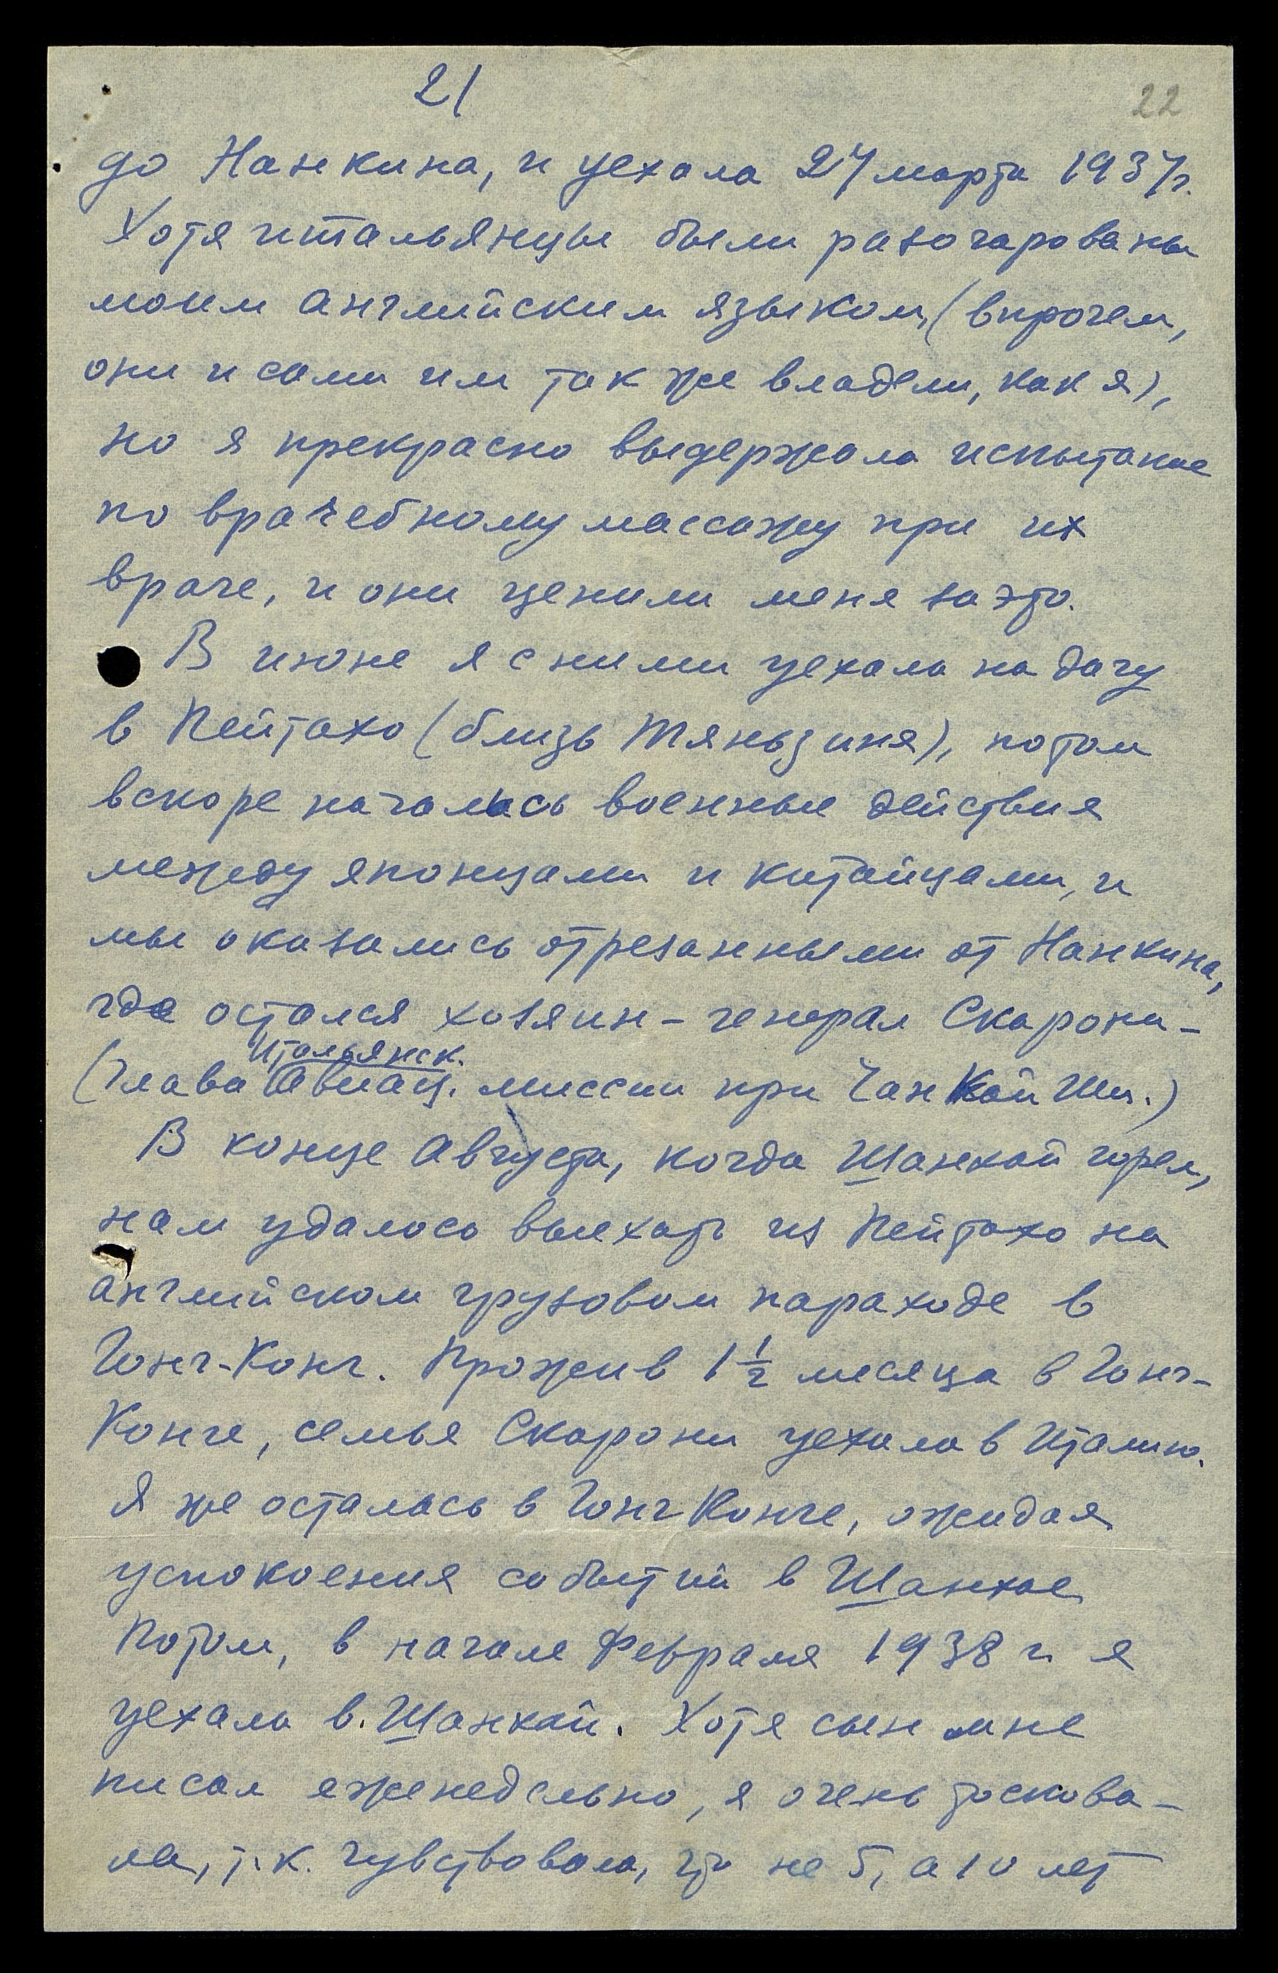 21
22
до Нанкина, и уехала 27 марта 1937г.
Хотя итальянцы были разочарованы
моим английским языком, (впрочем,
они и сами им так же владели, как я),
но я прекрасно выдержала испытание
по врачебному массажу при их
враче, и они ценили меня за это.
В июне я с ними уехала на дачу
в Пейтахо (близь Тяньзиня), потом
вскоре началась военные действия
между японцами и китайцами, и
мы оказались отрезанными от Нанкина,
где остался хозяин - генерал Скарони -
Итальянск.
(Глава Авиац. миссии при Чан Кай Ши.)
В конце Августа, когда Шанхай горел,
нам удалось выехать из Пейтахо на
английском грузовом пароходе в
Гонг-Конг. Прожив 1 1/2 месяца в Гонг-
Конге, семья Скарони уехала в Италию.
Я же осталась в Гонг Конге, ожидая
успокоения событий в Шанхае
Потом, в начале Февраля 1938 г. я
уехала в Шанхай. Хотя сын мне
писал еженедельно, я очень тоскова-
ла, т.к. чувствовала, что не 5, а 10 лет